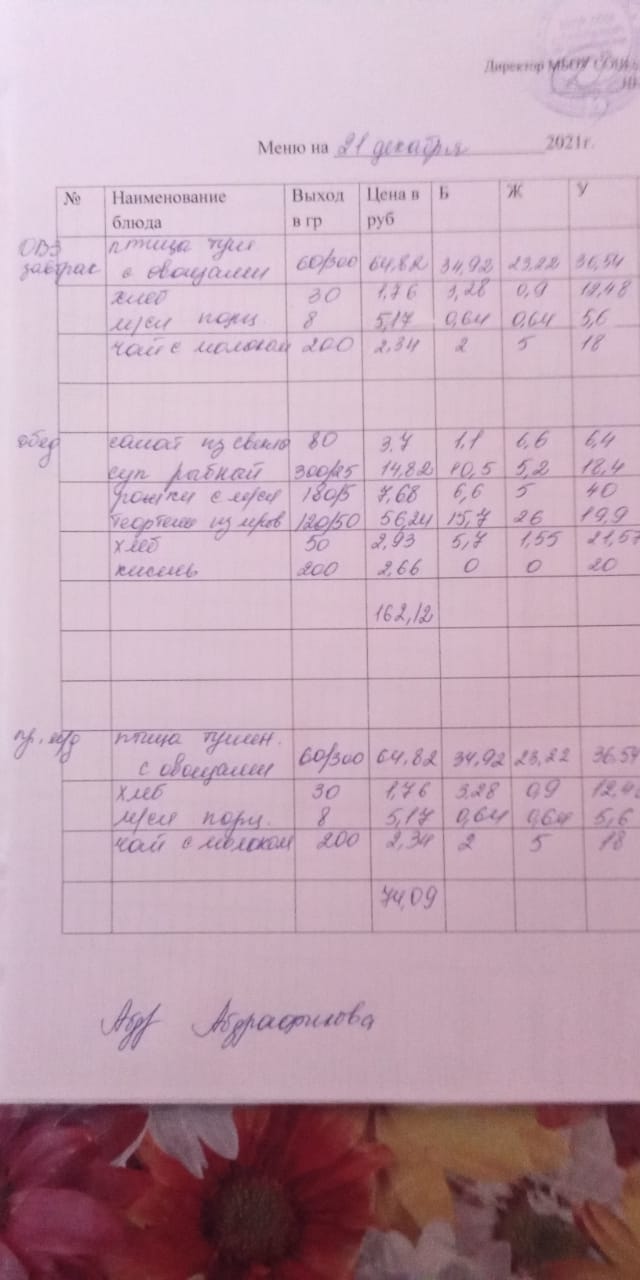 Директор МБОУ СОШ
Меню на 21 декабря 2021г.
№ Наименование блюда Выход в гр Цена в руб Б Ж У
ОВЗ завтрак птица туш с овощами 60/300 64,82 34,92 23,22 36,54
хлеб 30 1,76 3,28 0,9 12,48
м/сл порц 8 5,17 0,64 0,64 5,6
чай с молоком 200 2,34 2 5 18
обед салат из свеклы 80 3,7 1,1 6,6 6,4
суп рыбный 300/25 14,82 10,5 5,2 18,4
рожки с м/сл 180/5 7,68 6,6 5 40
из 120/50 56,24 15,7 26 19,9
хлеб 50 2,93 5,7 1,55 21,57
кисель 200 2,66 0 0 20
162,12
птица тушен. с овощами 60/300 64,82 34,92 23,22 36.54
хлеб 30 1,76 3,28 0,9
м/сл порц. 8 5,17 0,64 0,64 5,6
чай с молоком 200 2,34 2 5 18
74,09